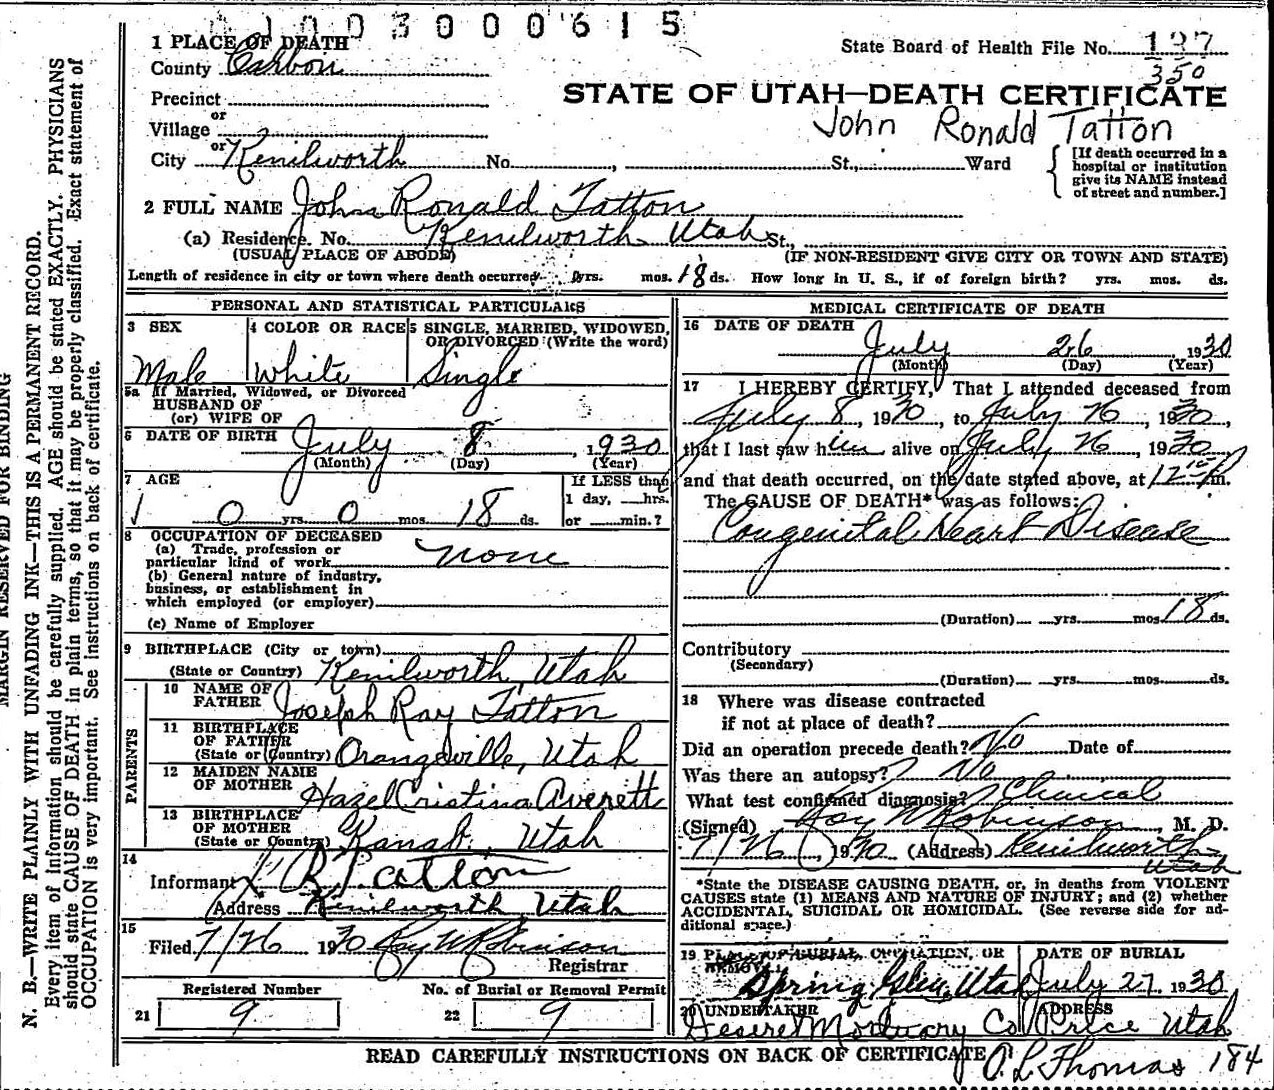 1003000615
1 PLACE OF DEATH
State Board of Health File No. 197
350
County Carbon
Precinct
STATE OF UTAH—DEATH CERTIFICATE
or
Village
John Ronald Tatton
or
City Kenilworth No. , St., Ward
[If death occurred in a hospital or institution give its NAME instead of street and number.]
2 FULL NAME John Ronald Tatton
(a) Residence. No. Kenilworth Utah St.,
(USUAL PLACE OF ABODE) (IF NON-RESIDENT GIVE CITY OR TOWN AND STATE)
Length of residence in city or town where death occurred yrs. mos. 18 ds. How long in U. S., if of foreign birth? yrs. mos. ds.
PERSONAL AND STATISTICAL PARTICULARS
3 SEX
Male
4 COLOR OR RACE
White
5 SINGLE, MARRIED, WIDOWED,
OR DIVORCED (Write the word)
Single
5a If Married, Widowed, or Divorced
HUSBAND OF
(or) WIFE OF
6 DATE OF BIRTH July 8, 1930
(Month) (Day) (Year)
7 AGE
0 yrs. 0 mos. 18 ds.
If LESS than
1 day, hrs.
or min.?
8 OCCUPATION OF DECEASED
(a) Trade, profession or
particular kind of work none
(b) General nature of industry,
business, or establishment in
which employed (or employer)
(c) Name of Employer
9 BIRTHPLACE (City or town)
(State or Country) Kenilworth, Utah
PARENTS
10 NAME OF
FATHER Joseph Ray Tatton
11 BIRTHPLACE
OF FATHER
(State or Country) Orangeville, Utah
12 MAIDEN NAME
OF MOTHER Hazel Cristina Averett
13 BIRTHPLACE
OF MOTHER
(State or Country) Kanab, Utah
14
Informant R Tatton
Address Kenilworth, Utah
15
Filed 7/26 1930 Roy W Robinson
Registrar
Registered Number No. of Burial or Removal Permit
21 9 22 9
MEDICAL CERTIFICATE OF DEATH
16 DATE OF DEATH
July 26 1930
(Month) (Day) (Year)
17 I HEREBY CERTIFY, That I attended deceased from
July 8, 1930, to July 26, 1930,
that I last saw him alive on July 26, 1930
and that death occurred, on the date stated above, at m.
The CAUSE OF DEATH* was as follows:
Congenital Heart Disease
(Duration) yrs. mos. 18 ds.
Contributory
(Secondary)
(Duration) yrs. mos. ds.
18 Where was disease contracted
if not at place of death?
Did an operation precede death? No Date of
Was there an autopsy? No
What test confirmed diagnosis? Clinical
(Signed) Roy W Robinson, M. D.
7/26, 1930 (Address) Kenilworth
Utah
*State the DISEASE CAUSING DEATH, or, in deaths from VIOLENT
CAUSES state (1) MEANS AND NATURE OF INJURY; and (2) whether
ACCIDENTAL, SUICIDAL OR HOMICIDAL. (See reverse side for ad-
ditional space.)
19 PLACE OF BURIAL, CREMATION, OR
REMOVAL
Spring Glen, Utah
DATE OF BURIAL
July 27, 1930
20 UNDERTAKER
Deseret Mortuary Co
ADDRESS
Price Utah
READ CAREFULLY INSTRUCTIONS ON BACK OF CERTIFICATE
O. L. Thomas 184
MARGIN RESERVED FOR BINDING
N. B.—WRITE PLAINLY WITH UNFADING INK—THIS IS A PERMANENT RECORD.
Every item of information should be carefully supplied. AGE should be stated EXACTLY. PHYSICIANS
should state CAUSE OF DEATH in plain terms, so that it may be properly classified. Exact statement of
OCCUPATION is very important. See instructions on back of certificate.